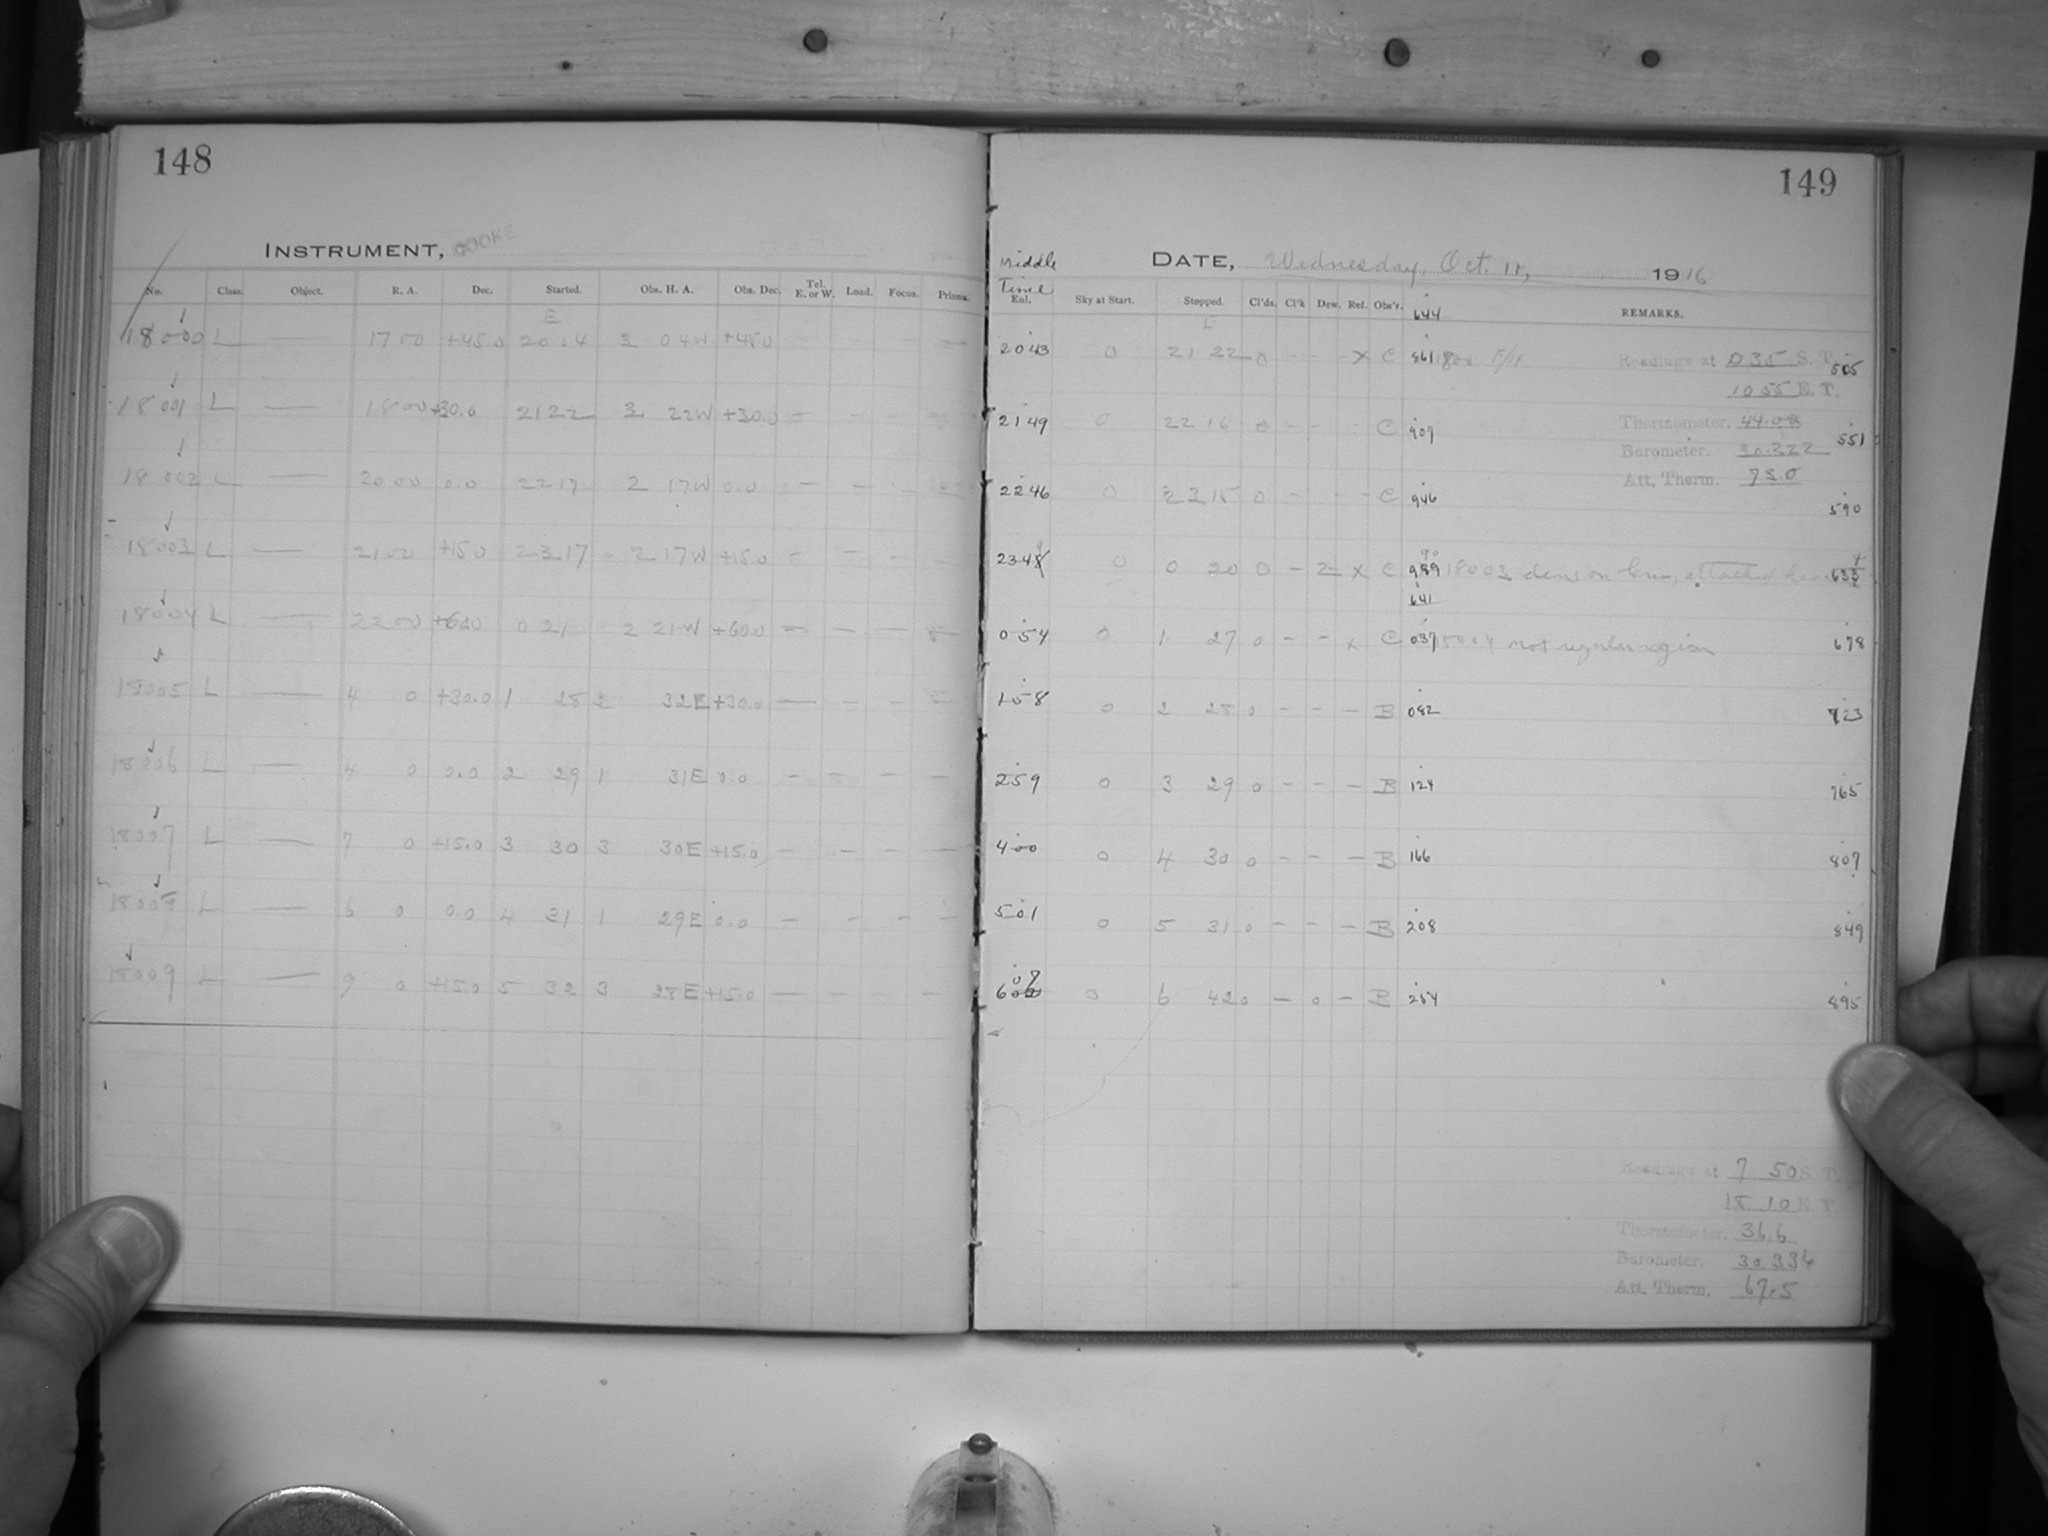 148
INSTRUMENT, COOKE
No. Class. Object. R. A. Dec. Started. Obs. H. A. Obs. Dec. Tel. E. or W. Load. Focus. Prisms.
E
18000 L — 17 00 +45.0 20 04 3 04W +45.0 — — — —
18001 L — 18 00 +30.0 2122 3 22W +30.0 — — — —
18002 L — 20 00 0.0 2217 2 17W 0.0 — — — —
18003 L — 21 00 +15.0 2317 2 17W +15.0 — — — —
18004 L — 22 00 +60.0 0 21 2 21W +60.0 — — — —
18005 L — 4 0 +30.0 1 28 2 32E +30.0 — — — —
18006 L — 4 0 0.0 2 29 1 31E 0.0 — — — —
18007 L — 7 0 +15.0 3 30 3 30E +15.0 — — — —
18008 L — 6 0 0.0 4 31 1 29E 0.0 — — — —
18009 L — 9 0 +15.0 5 32 3 28E +15.0 — — — —
149
DATE, Wednesday, Oct. 11, 1916
Middle Time
Enl. Sky at Start. Stopped. Cl'ds. Cl'k Dew. Ref. Obs'r. REMARKS.
644
2043 0 21 22 0 - - - X C 861 505
Readings at 0 35 S. T.
10 55 E. T.
2149 0 22 16 0 - - - C 907 551
Thermometer. 44.0
Barometer. 30.322
Att. Therm. 73.0
2246 0 23 15 0 - - - C 946 590
2348 0 0 20 0 - 2 X C 989 18003 dew on lens, attached 633
641
054 0 1 27 0 - - x C 037 18004 not regular region 678
158 0 2 28 0 - - - B 082 723
259 0 3 29 0 - - - B 124 765
400 0 4 30 0 - - - B 166 807
501 0 5 31 0 - - - B 208 849
607 0 6 42 0 - 0 - B 254 895
Readings at 7 50 S. T.
18 10 E. T.
Thermometer. 36.6
Barometer. 30.334
Att. Therm. 67.5